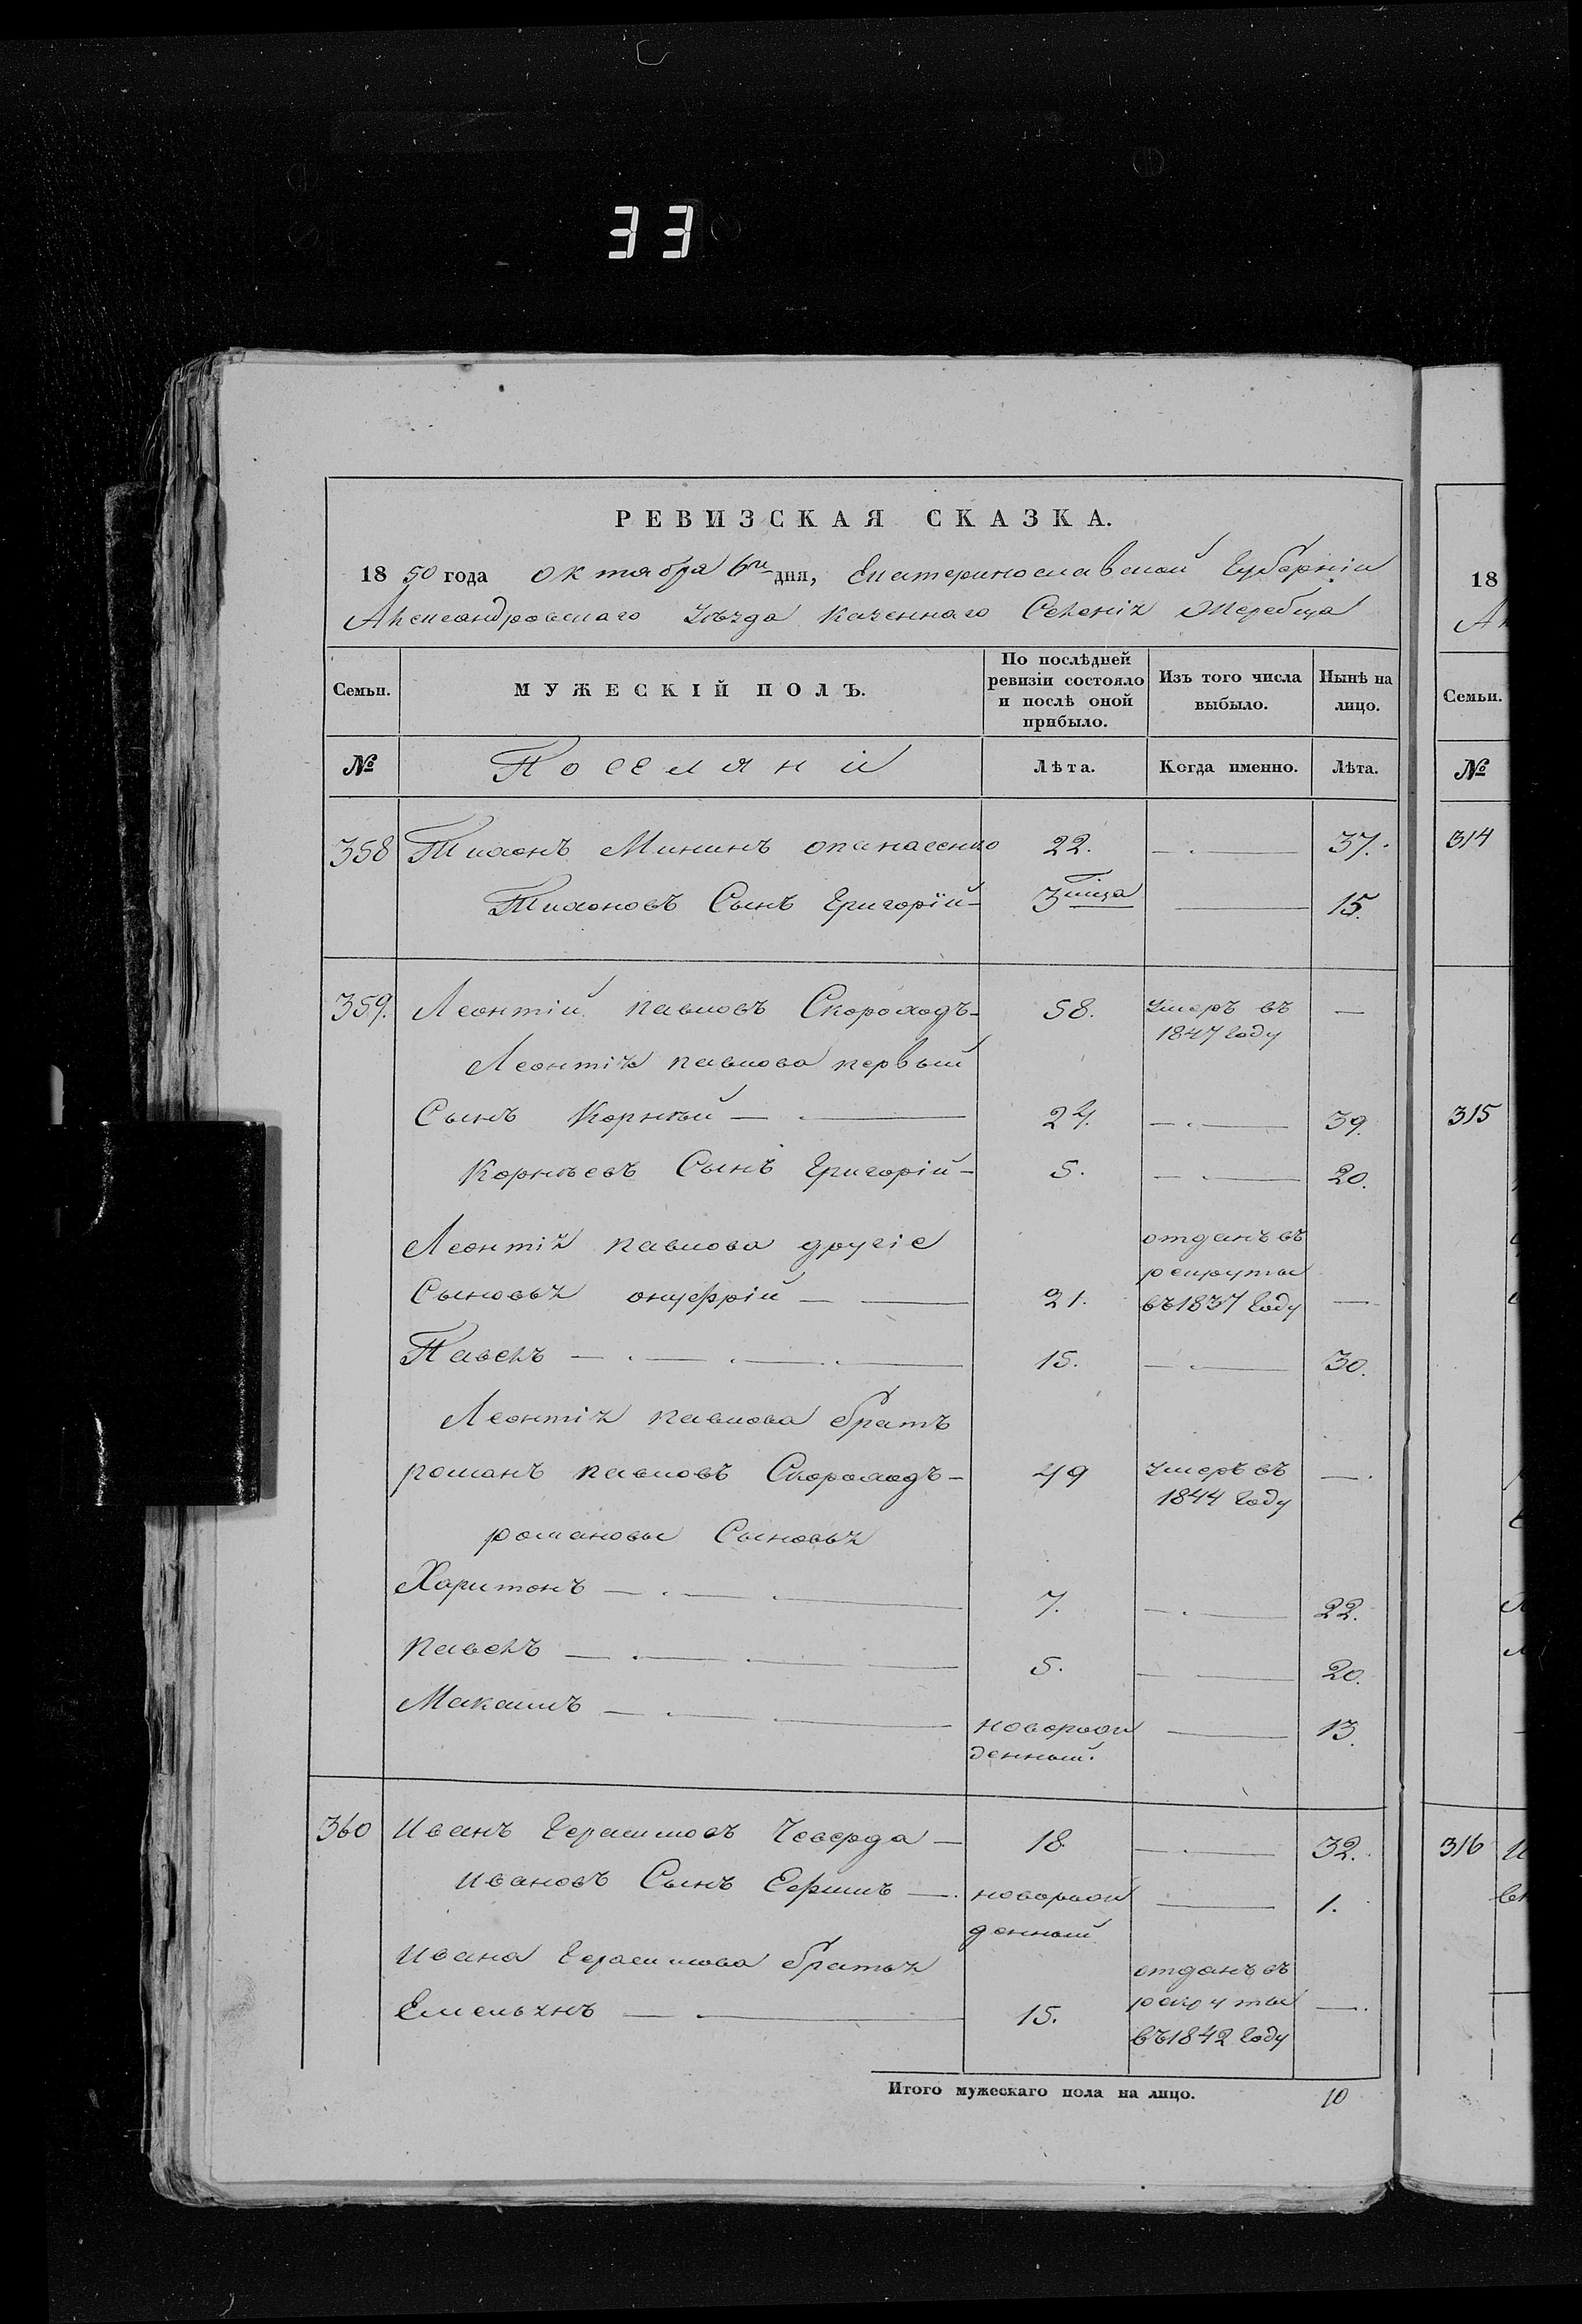 33
РЕВИЗСКАЯ СКАЗКА.
18 50 года октября 6го дня, Екатеринославской Губерніи
Александровскаго Уѣзда казеннаго Селенія Жеребца
Семьи. МУЖЕСКІЙ ПОЛЪ. По послѣдней ревизіи состояло и послѣ оной прибыло. Изъ того числа выбыло. Нынѣ на лицо.
№ Поселяне Лѣта. Когда именно. Лѣта.
358 Тихонъ Мининъ опанасенко 22. — 37.
Тихоновъ Сынъ Григорій 3 — 15.
359. Леонтій павловъ Скороходъ 58. умеръ въ 1847 году —
Леонтія павлова первый
Сынъ Корнѣй — 24. — 39.
Корнѣевъ Сынъ Григорій 5. — 20.
Леонтія павлова другіе
Сыновья онуфрій — 21. отданъ въ рекруты въ 1837 году —
Павелъ — 15. — 30.
Леонтія павлова братъ
романъ павловъ Скороходъ 49 умеръ въ 1844 году —
романовы Сыновья
Харитонъ — 7. — 22.
павелъ — 5. — 20.
Максимъ — новорож денный. — 13.
360 Иванъ Герасимовъ Чеверда — 18 — 32.
Ивановъ Сынъ Ефимъ — новорож денный — 1.
Ивана Герасимова братья
Емельянъ — 15. отданъ въ рекруты въ 1842 году —
Итого мужескаго пола на лицо. 10
18
Семьи.
№
314
315
316